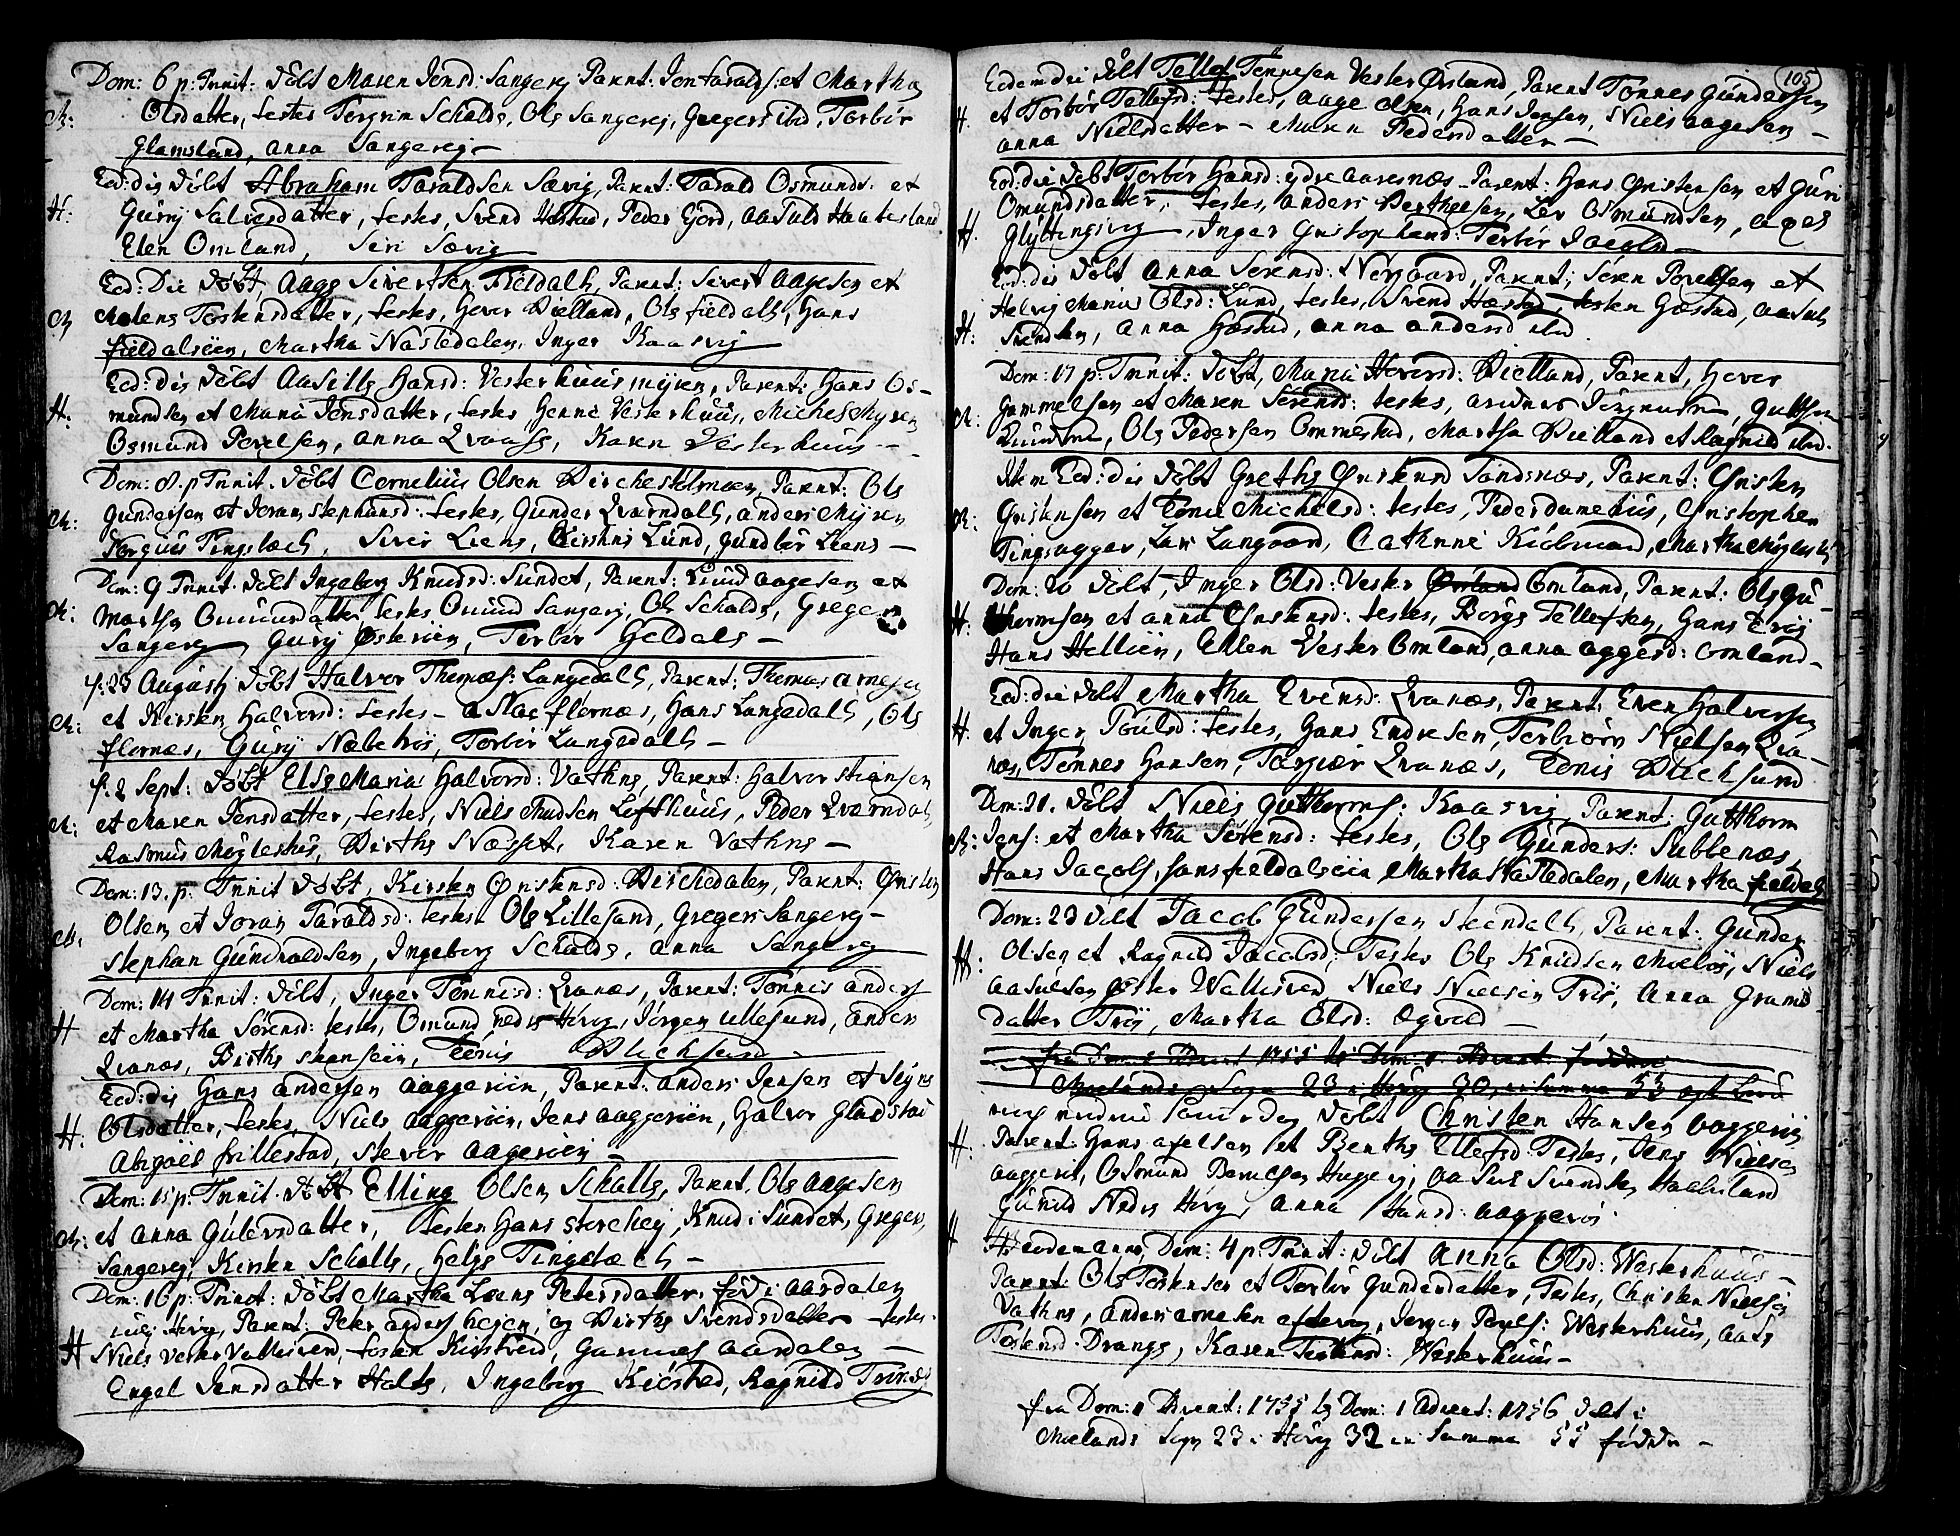 Dom: 6 p: Trinit: döbt Maren Jensd: Sangereg Parent: Jen Taralds: et Martha
M: Olsdatter, testes Torgrim Schalds, Ols Sangereg, Gregers ibid, Torbör
Glamsland, anna Sangereg
Eod: die döbt Abraham Taraldsen Sævig, Parent: Tarald Osmunds: et
H: Gurij Salvesdatter, testes, Svend Hæstad, Peder Giord, aasuld Haabesland
Elen Omland, Siri Sævig
Eod: Die döbt, Aage Sivertsen Fieldals, Parent: Sivert Aagesen et
M Malene Toskensdatter, testes, Hover Bielland, Ols fieldals, Hans
fieldalsöen, Martha Nastedalen, Inger Kaasvig
Eod: die döbt Aasille Hansd: Vesterhuus myren, Parent: Hans Os-
H: mundsen et Maria Jensdatter, testes Henne Vesterhuus, Michel Myren
Osmund Povelsen, anna Qvaase, Karen Vesterhuus -
Dom: 8. p Trinit. döbt Cornelius Olsen Birchestolmoen, Parent: Ols
M: Gundersen et Joran Stephansd: testes, Gunder Qvarndals, anders Myren
Torgius Tingstæch, Siver Liens, Kirsten Lund, Gundbör Liens -
Dom: 9 Trinit. döbt Ingeborg Knudsd: Sundet, Parent: Knud aagesen et
M: Martha Omundsdatter testes Omund Sangereg, Ols Schalds, Greger
Sangereg Gurij Österöen, Torbör Heldals -
f: 23 Augustj döbt Halvor Thomæs: Langedals, Parent: Thomas arnesen
M: et Kirsten Halvorsd: testes - aslac flornæs, Hans Langedals, Ols
flornæs, Gurij Næbetröi, Torbör Langedals -
f: 2 Sept: döbt Else Maria Halvorsd: Vathne, Parent: Halvor Stiansen
M: et Maren Jensdatter, testes, Niels Knudsen Lofthuus, Peder Qvarndals
Rasmus Möglestue, Birthe Næsset, Karen Vathne -
Dom: 13. p: Trinit döbt, Kirsten Christensd: Birchedalen, Parent: Christen
M: Olsen et Joran Taraldsd: testes Ols Lillesand, Gregers Sangereg -
Stephan Gundvaldsen, Ingeborg Schalds, anna Sangereg
Dom: 14 Trinit: döbt, Inger Tønnisd: Qvanæs, Parent: Tönnis anders
H et Martha Sørensd: testes, Omund nedre Höivog, Jörgen Ullesund, anders
Qvanæs, Birthe skansöen, Tönis Blichsund -
Eod: die Hans andersen aaggeröen, Parent: anders Jensen et Signe
H: Olsdatter, testes, Niels aaggeröen, Jens aaggeröen, Halvor Gladstad
Abigael frillestad, Siever aagerøen -
Dom: 15 p: Trinit: döbt Elling Olsen Schalls, Parent. Ols aagesen
M: et anna Gulevsdatter, testes Hans Storehej, Knud i Sundet, Gregers,
Sangereg, Kirsten Schalls, Helge Tingstæch -
Dom: 16 p: Trinit: döbt Martha Lovans Petersdatter, fød i aardalen
Höivog, Parent: Peter anders hegen, og Birthe Svendsdatter testes.
H Niels Vester Vallesverd, testen Kiöstvedt, Gunnas aardalen
Engel Jensdatter Holte, Ingeborg Kiöstad, Ragnild
105
Eodem die döbt Tellef Tønnesen Vester Øisland, Parent Tønnes Gundersen
H. et Torbör Tellefsd: testes, Aage Olsen, Hans Jensen, Niels aagesen -
anna Nielsdatter - Maren Pedersdatter -
Eod: die döbt Torbör Hansd: ydre aaresnæs. Parent: Hans Christensen et Guri
Omundsdatter, testes, anders Berthelsen, Lar Osmundsen, axel
H. Glyttingsvig, Inger Christophersd: Torbör Jacobs
Eod: die döbt anna Sørensd: Norgaard, Parent: Søren Povelsen et
Helvig Maria Olsd: Lund, testes, Svend Hæstad, testen Hæstad, aasuld
H. Svendsen, anna Hæstad, anna andersd ibid
Dom: 17 p: Trinit: döbt, Maria Hoversd: Bielland, Parent, Hover
M. Gammelsen et Maren Sörensd: testes, Jörgensen, Gutthor
, Ols Pedersen Ommestad, Martha Bielland et Ragnild ibid.
Item Eod: die döbt Grethe Christensd Sandsnæs, Parent: Christen
M: Christensen et Tönne Michelsd: testes, Peder dumehus, Christopher
Tingsagger, Lar Langaard, Cathrine Kiöbmand, Martha Möglestue
Dom: 20 döbt, Inger Olsd: Vester Øisland Omland, Parent: Ols Gu-
H. thormsen et anna Christensd: testes, Borge Tellefsen, Hans Tröj
Hans Hellöen, Ellen Vester Omland, anna aggersd: Omland -
Eod: die döbt Martha Evensd: Qvanæs, Parent: Even Halversen
H. et Inger Poulsd: testes, Hans Endresen, Torbiörn Nielsen Qva-
næs, Tønnes Hansen, Torgiær Qvanæs, Tönis Blichsund
Dom: 21. döbt Niels Gutthorms: Kaasvig, Parent: Gutthorm
M: Jens: et Martha Sörensd: testes, Ols Gunders: Sublenæs,
Hans Jacobs, Hans fieldalsöen Martha Nastedalen, Martha fieldals
Dom: 23 döbt Jacob Gundersen Steendals, Parent: Gunder
H: Olsen et Ragnild Jacobsd: Testes Ols Knudsen Moeløj, Niels
aasulsen öster Vallesverd Niels Nielsen Tröj, Anna Grams
datter Tröj, Martha Olsd: Ægvold -
fra Dom: 1 Advent 1755 til Dom: 1 Advent fødde
Moelands Sogn 23 i Höivog 30, er Summa 53
döbt Christen Hansen aaggeröj
H. Parent: Hans axelsen et Benthe Ellefsd Testes, Jens Nielsen
aaggeröj, Osmund Hæggej, aasul Svendsen Haabesland
Gunild Nedre Höivog, Anna Hansd: aaggeröj.
H H: eodem anno, Dom: 4 p. Trinit: döbt Anna Olsd: Westerhuus -
Parent: Ols Terkensen et Torbör Gundersdatter, Testes, Christen Nielsen
Vathne, anders arnesen , Jörgen Povels: Westerhuus, aase
Terkensd. Drange, Karen Terkensd: Westerhuus -
fra Dom: 1 Advent: 1755 til Dom: 1 Advent: 1756 döbt i
Moelands Sogn 23 i Höivog 32 er Summa 55 fødde -